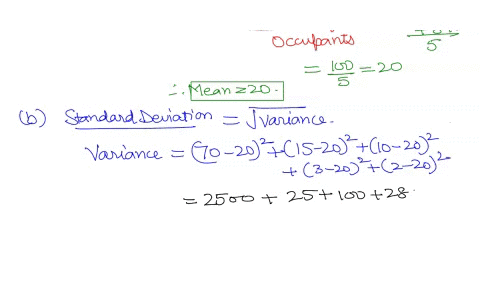 Occupants
5
= 100/5 = 20
∴ Mean = 20.
(b) Standard Deviation = √Variance.
Variance = (70-20)² + (15-20)² + (10-20)²
+ (3-20)² + (2-20)²
= 2500 + 25 + 100 + 28